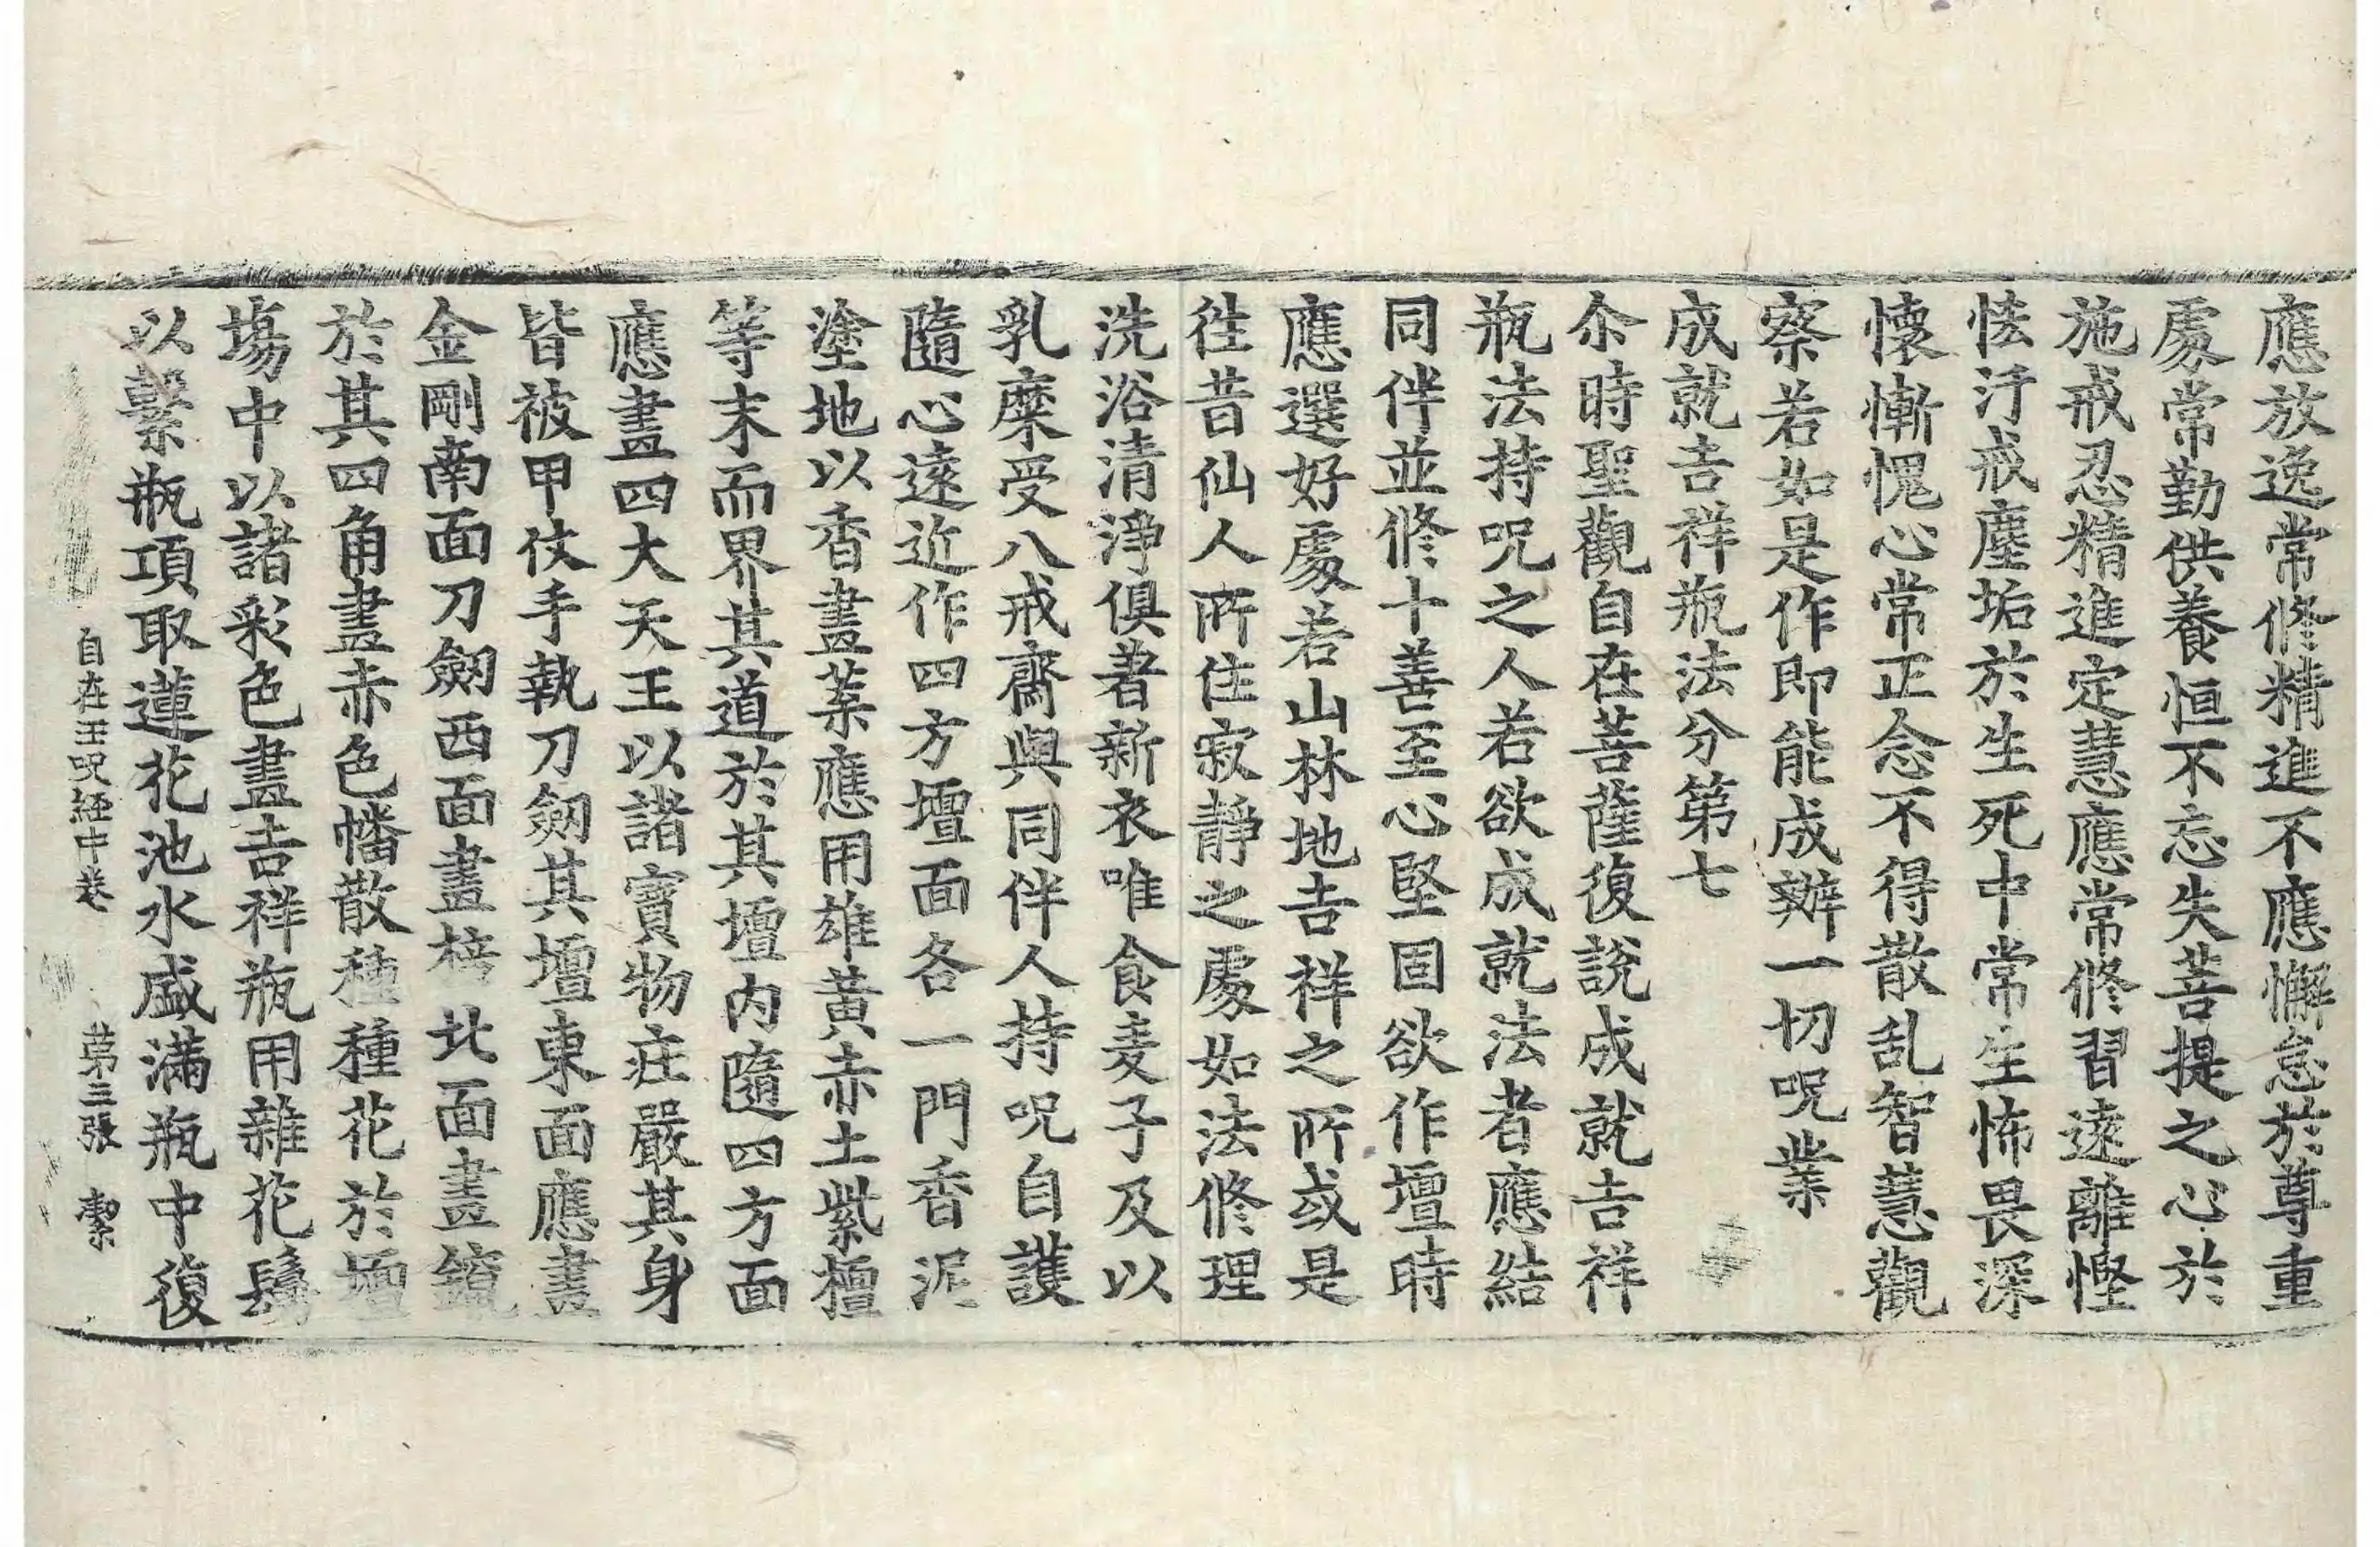 應放逸常修精進不應懈怠於尊重
處常勤供養恒不忘失菩提之心於
施戒忍精進定慧應常修習遠離慳
恡汙戒塵垢於生死中常生怖畏深
懷慚愧心常正念不得散乱智慧觀
察若如是作即能成辦一切呪業
成就吉祥瓶法分第七
尒時聖觀自在菩薩復說成就吉祥
瓶法持呪之人若欲成就法者應結
同伴並修十善至心堅固欲作壇時
應選好處若山林地吉祥之所或是
往昔仙人所住寂靜之處如法修理
洗浴清淨俱著新衣唯食麦子及以
乳糜受八戒齋與同伴人持呪自護
隨心遠近作四方壇面各一門香泥
塗地以香畫葉應用雄黃赤土紫檀
等末而界其道於其壇內隨四方面
應畫四大天王以諸寶物莊嚴其身
皆被甲仗手執刀劒其壇東面應畫
金剛南面刀劒西面畫棓北面畫鑹
於其四角畫赤色幡散種種花於壇
場中以諸彩色畫吉祥瓶用雜花鬘
以繫瓶項取蓮花池水盛滿瓶中復
自在王呪経中卷 第三張 潔